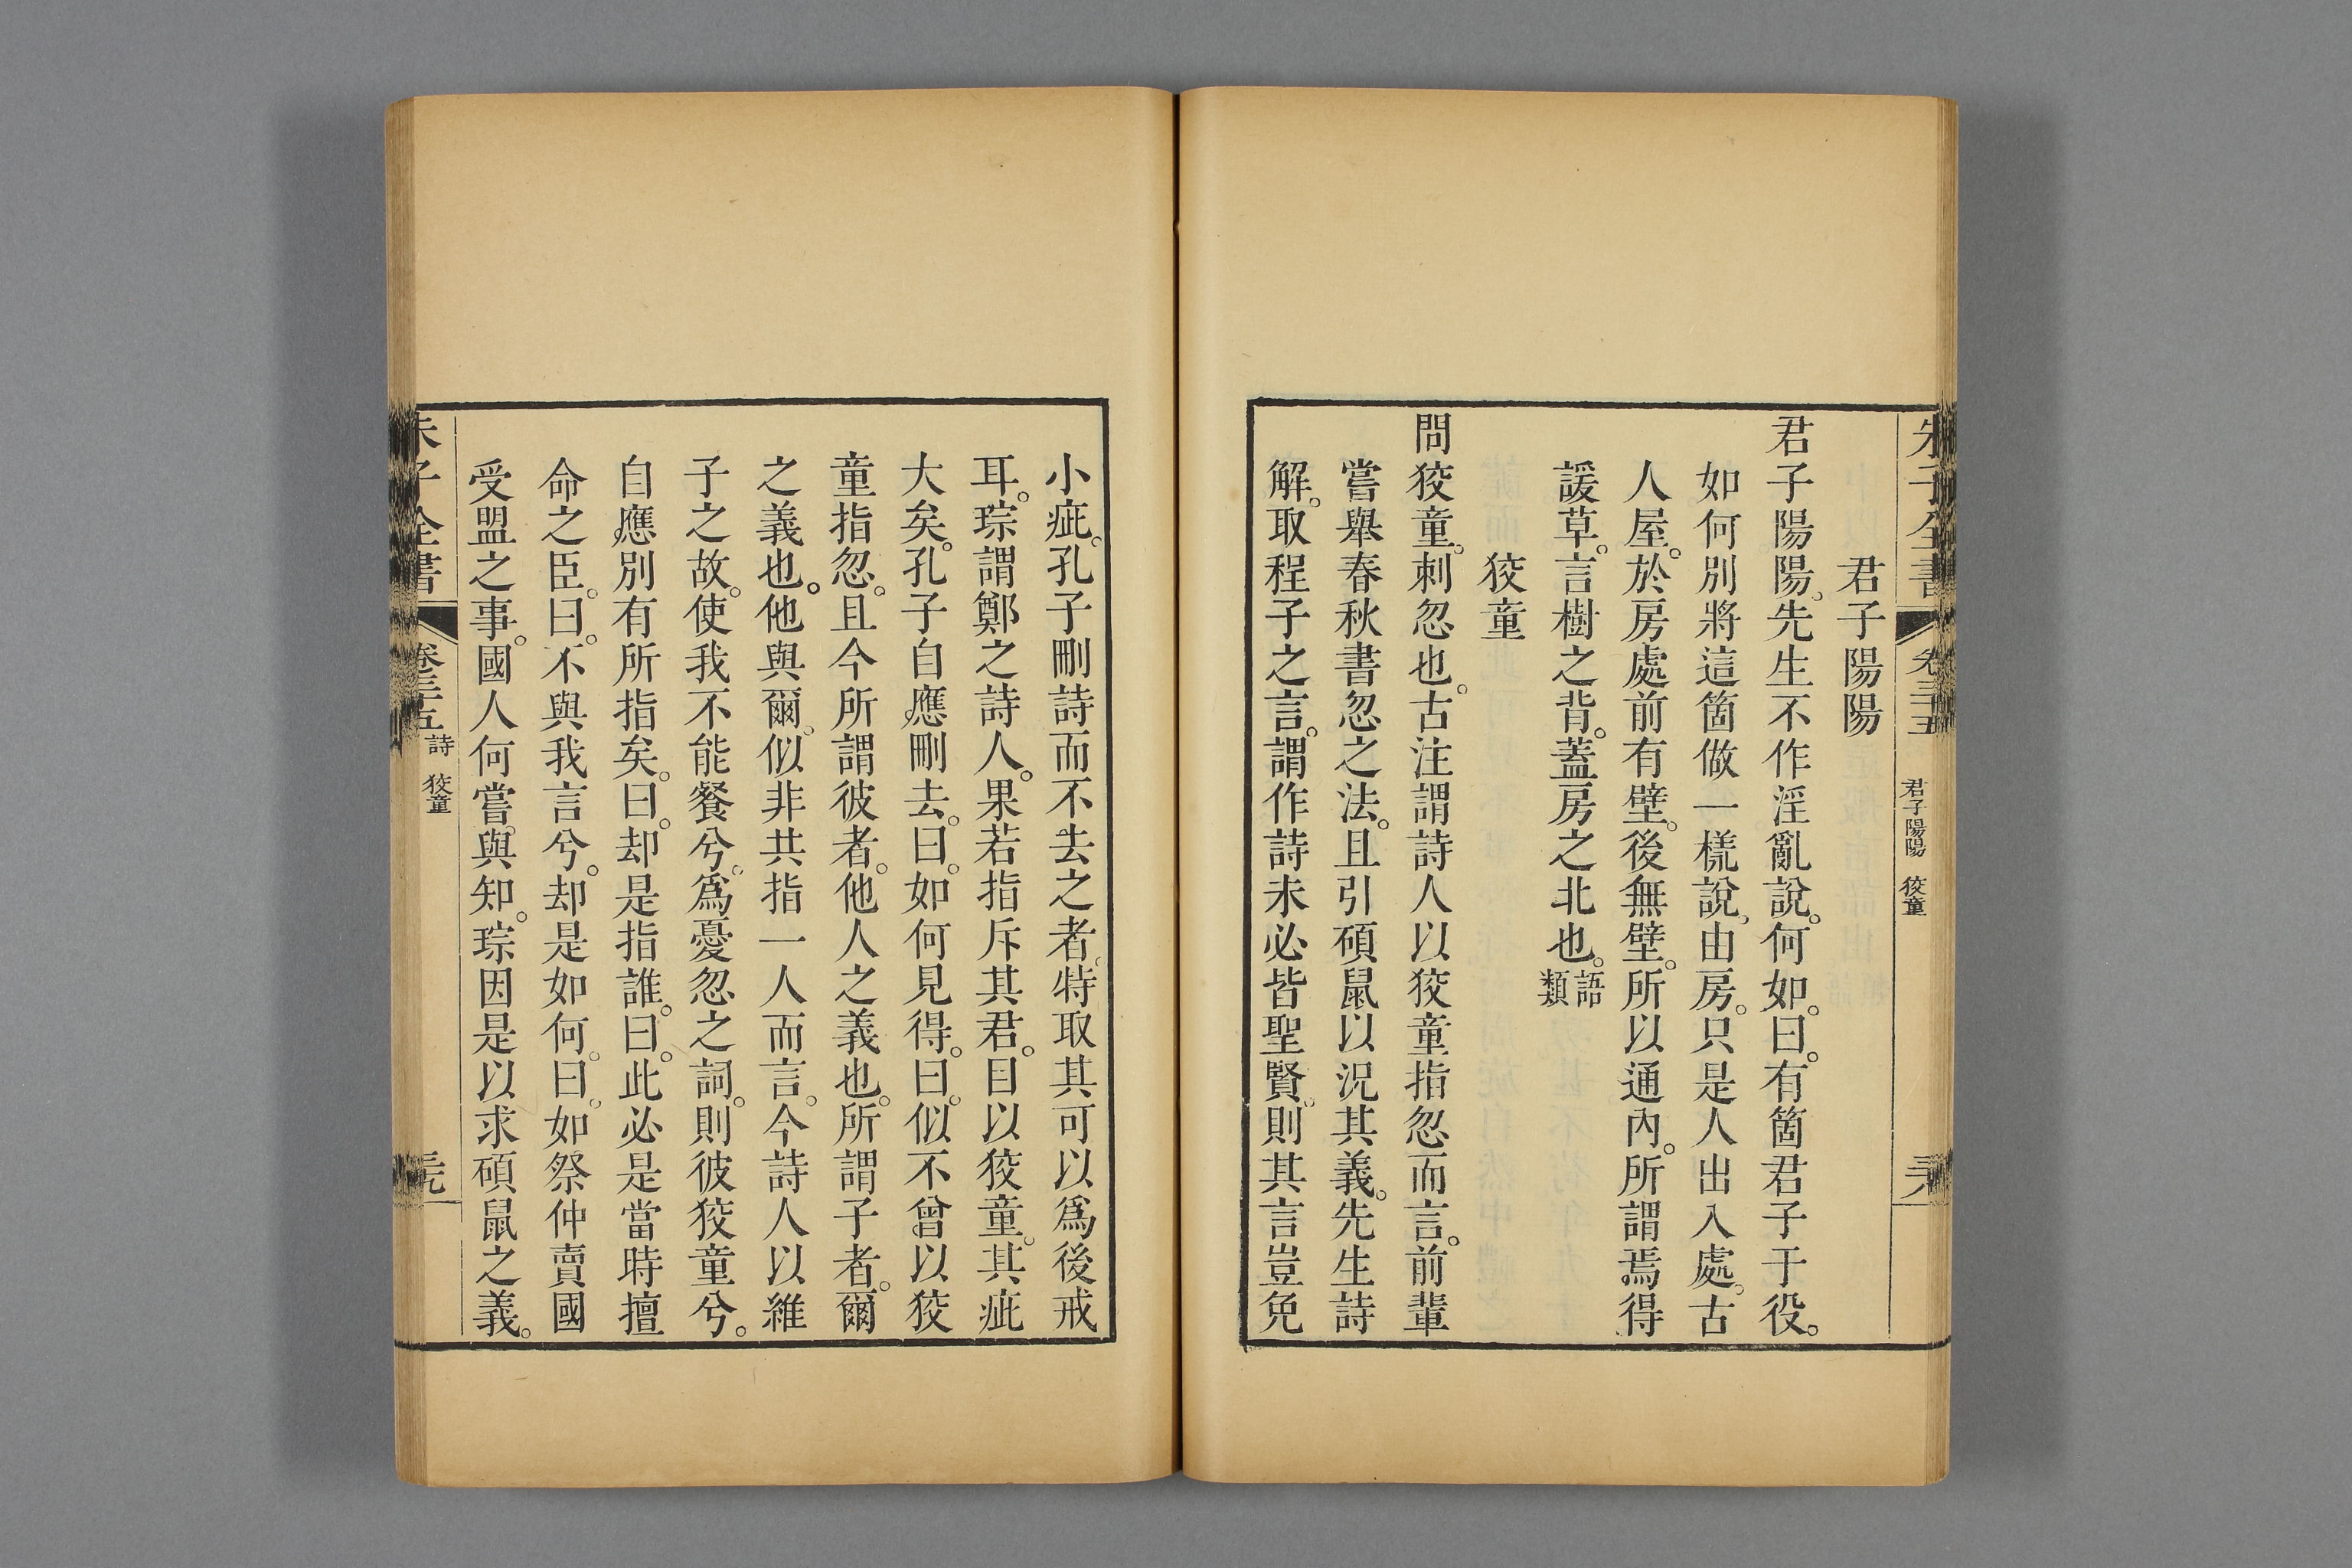 朱子全書 卷三十五 君子陽陽 狡童 三十八
君子陽陽
君子陽陽。先生不作淫亂說。何如。曰。有箇君子于役。
如何別將這箇做一㨾說。由房。只是人出入處。古
人屋。於房處前有壁。後無壁。所以通內。所謂焉得
諼草。言樹之背。蓋房之北也。語類
狡童
問狡童。刺忽也。古注謂詩人以狡童指忽而言。前輩
嘗舉春秋書忽之法。且引碩鼠以況其義。先生詩
解。取程子之言。謂作詩未必皆聖賢。則其言豈免
小疵。孔子刪詩而不去之者。特取其可以爲後戒
耳。琮謂鄭之詩人。果若指斥其君。目以狡童。其疵
大矣。孔子自應刪去。曰。如何見得。曰。似不曾以狡
童指忽。且今所謂彼者。他人之義也。所謂子者。爾
之義也。他與爾。似非共指一人而言。今詩人以維
子之故。使我不能餐兮。爲憂忽之詞。則彼狡童兮。
自應別有所指矣。曰。却是指誰。曰。此必是當時擅
命之臣。曰。不與我言兮。却是如何。曰。如祭仲賣國
受盟之事。國人何嘗與知。琮因是以求碩鼠之義。
朱子全書 卷三十五 詩 狡童 三十九